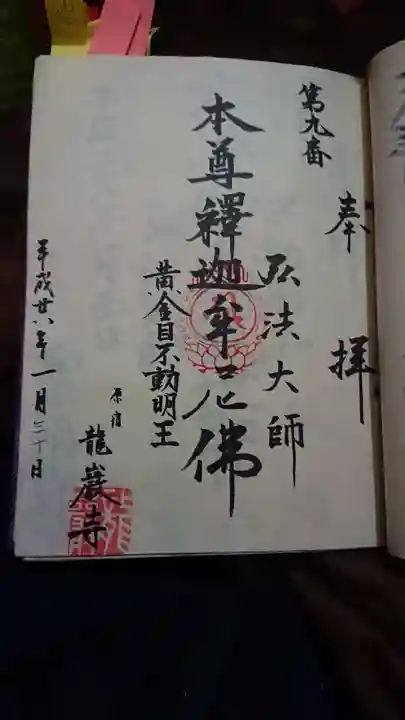 奉拝
第九番
弘法大師
本尊釋迦牟尼佛
黄金目不動明王
原宿
龍巌寺
平成廿八年一月三十日